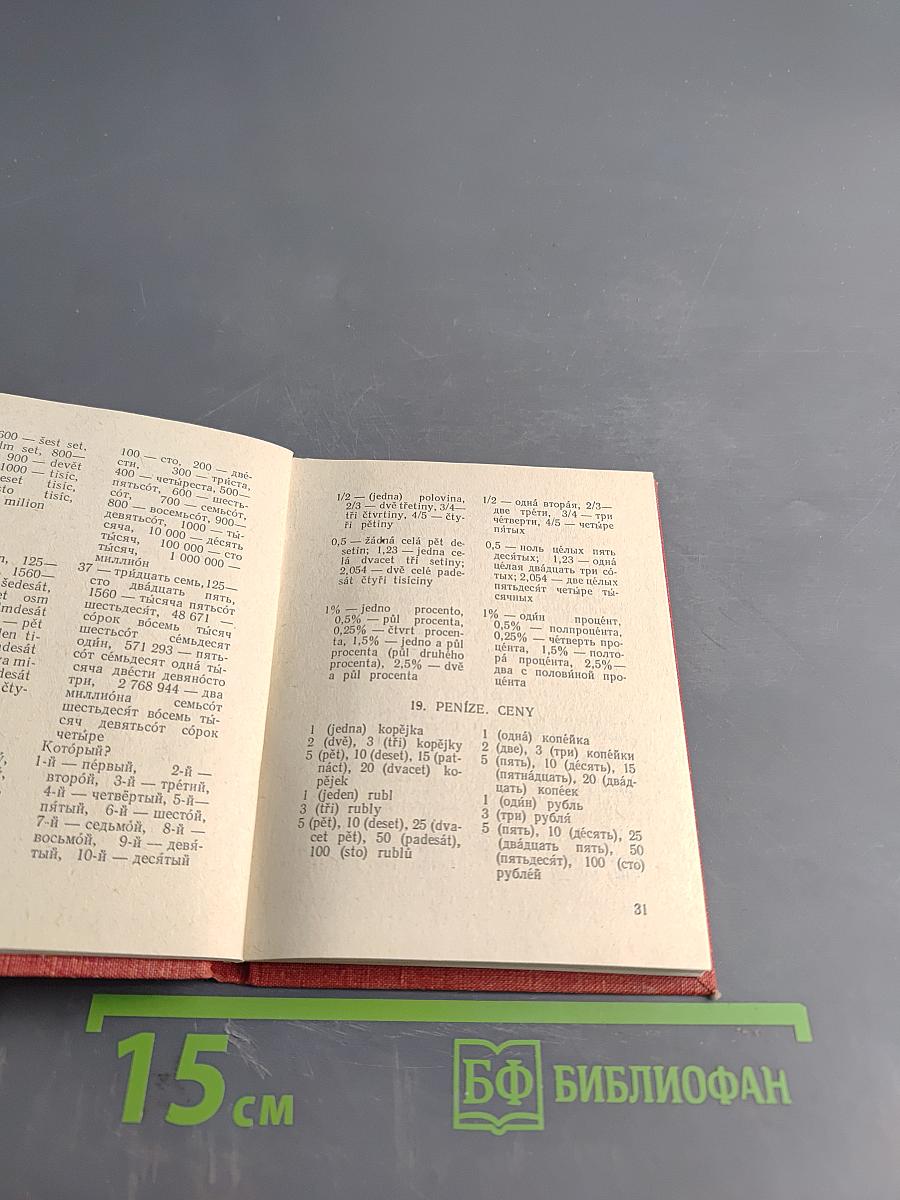 600 — šest set,
set, 800—
900 — devět
1000 — tisíc,
tisíc,
sto tisíc,
milion
125—
1560—
šedesát,
osm
— pět
čty-
100 — сто, 200 — две́-
сти, 300 — три́ста,
400 — четы́реста, 500—
пятьсо́т, 600 — шесть-
со́т, 700 — семьсо́т,
800 — восемьсо́т, 900—
девятьсо́т, 1000 — ты́-
сяча, 10 000 — де́сять
ты́сяч, 100 000 — сто
ты́сяч, 1 000 000 —
миллио́н
37 — три́дцать семь, 125—
сто два́дцать пять,
1560 — ты́сяча пятьсо́т
шестьдеся́т, 48 671 —
со́рок во́семь ты́сяч
шестьсо́т се́мьдесят
оди́н, 571 293 — пять-
со́т се́мьдесят одна́ ты́-
сяча две́сти девяно́сто
три, 2 768 944 — два
миллио́на семьсо́т
шестьдеся́т во́семь ты́-
сяч девятьсо́т со́рок
четы́ре
Кото́рый?
1-й — пе́рвый, 2-й —
второ́й, 3-й — тре́тий,
4-й — четвёртый, 5-й—
пя́тый, 6-й — шесто́й,
7-й — седьмо́й, 8-й —
восьмо́й, 9-й — девя́-
тый, 10-й — деся́тый
1/2 — (jedna) polovina,
2/3 — dvě třetiny, 3/4—
tři čtvrtiny, 4/5 — čty-
ři pětiny
0,5 — žádná celá pět de-
setin; 1,23 — jedna ce-
lá dvacet tři setiny;
2,054 — dvě celé pade-
sát čtyři tisíciny
1% — jedno procento,
0,5% — půl procenta,
0,25% — čtvrt procen-
ta, 1,5% — jedno a půl
procenta (půl druhého
procenta), 2,5% — dvě
a půl procenta
1/2 — одна́ втора́я, 2/3—
две тре́ти, 3/4 — три
че́тверти, 4/5 — четы́ре
пя́тых
0,5 — ноль це́лых пять
деся́тых; 1,23 — одна́
це́лая два́дцать три со́-
тых; 2,054 — две це́лых
пятьдеся́т четы́ре ты́-
сячных
1% — оди́н проце́нт,
0,5% — полпроце́нта,
0,25% — че́тверть про-
це́нта, 1,5% — полто-
ра́ проце́нта, 2,5%—
два с полови́ной про-
це́нта
19. PENÍZE. CENY
1 (jedna) kopějka
2 (dvě), 3 (tři) kopějky
5 (pět), 10 (deset), 15 (pat-
náct), 20 (dvacet) ko-
pějek
1 (jeden) rubl
3 (tři) rubly
5 (pět), 10 (deset), 25 (dva-
cet pět), 50 (padesát),
100 (sto) rublů
1 (одна́) копе́йка
2 (две), 3 (три) копе́йки
5 (пять), 10 (де́сять), 15
(пятна́дцать), 20 (два́д-
цать) копе́ек
1 (оди́н) рубль
3 (три) рубля́
5 (пять), 10 (де́сять), 25
(два́дцать пять), 50
(пятьдеся́т), 100 (сто)
рубле́й
31
15 см
БФ БИБЛИОФАН